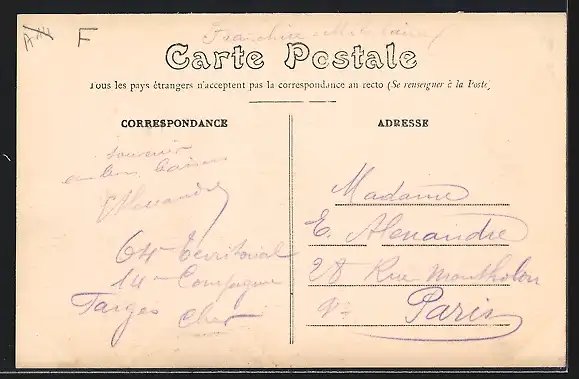 F
Franchise Militaire
Carte Postale
Tous les pays étrangers n'acceptent pas la correspondance au recto (Se renseigner à la Poste)
CORRESPONDANCE
souvenir
Alexandre
64e Territorial
14e Compagnie
Farges
Cher
ADRESSE
Madame
E. Alexandre
28 Rue Montholon
Paris